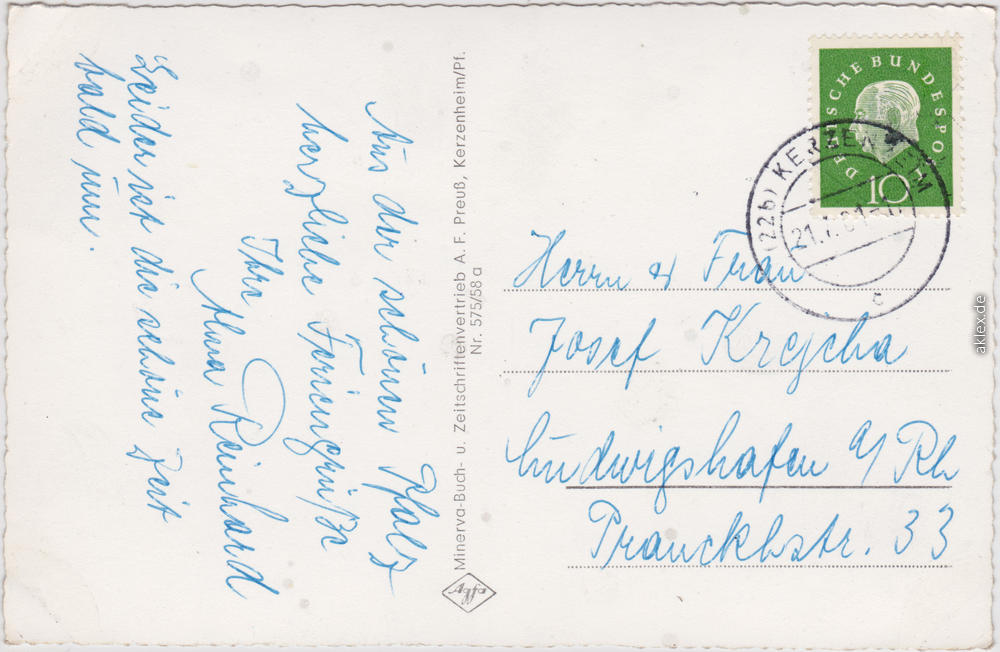 Aus der schönen Pfalz
herzliche Feriengrüße
Ihre
Alma Reinhard
Leider ist die schöne Zeit
bald um.
Minerva-Buch- u. Zeitschriftenvertrieb A. F. Preuß, Kerzenheim/Pf.
Nr. 575/58a
Agfa
DEUTSCHE BUNDESPOST
10
(22b) KERZENHEIM
21.7.61
c
Herrn & Frau
Josef Krejcha
Ludwigshafen a/Rh
Pranckhstr. 33
aklex.de